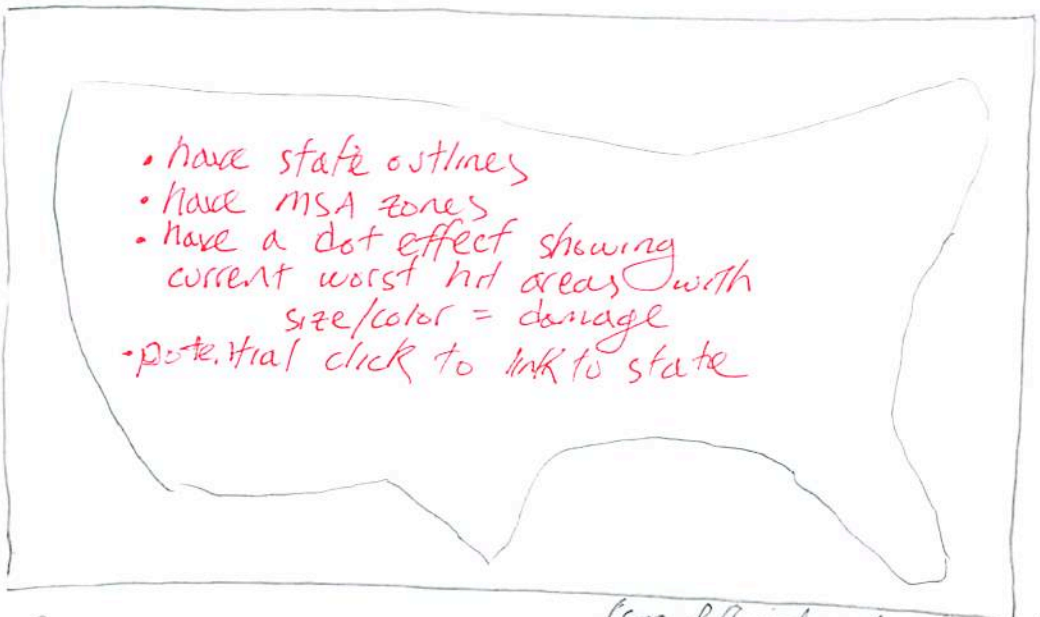 • have state outlines
• have MSA zones
• have a dot effect showing
current worst hit areas with
size/color = damage
• potential click to link to state